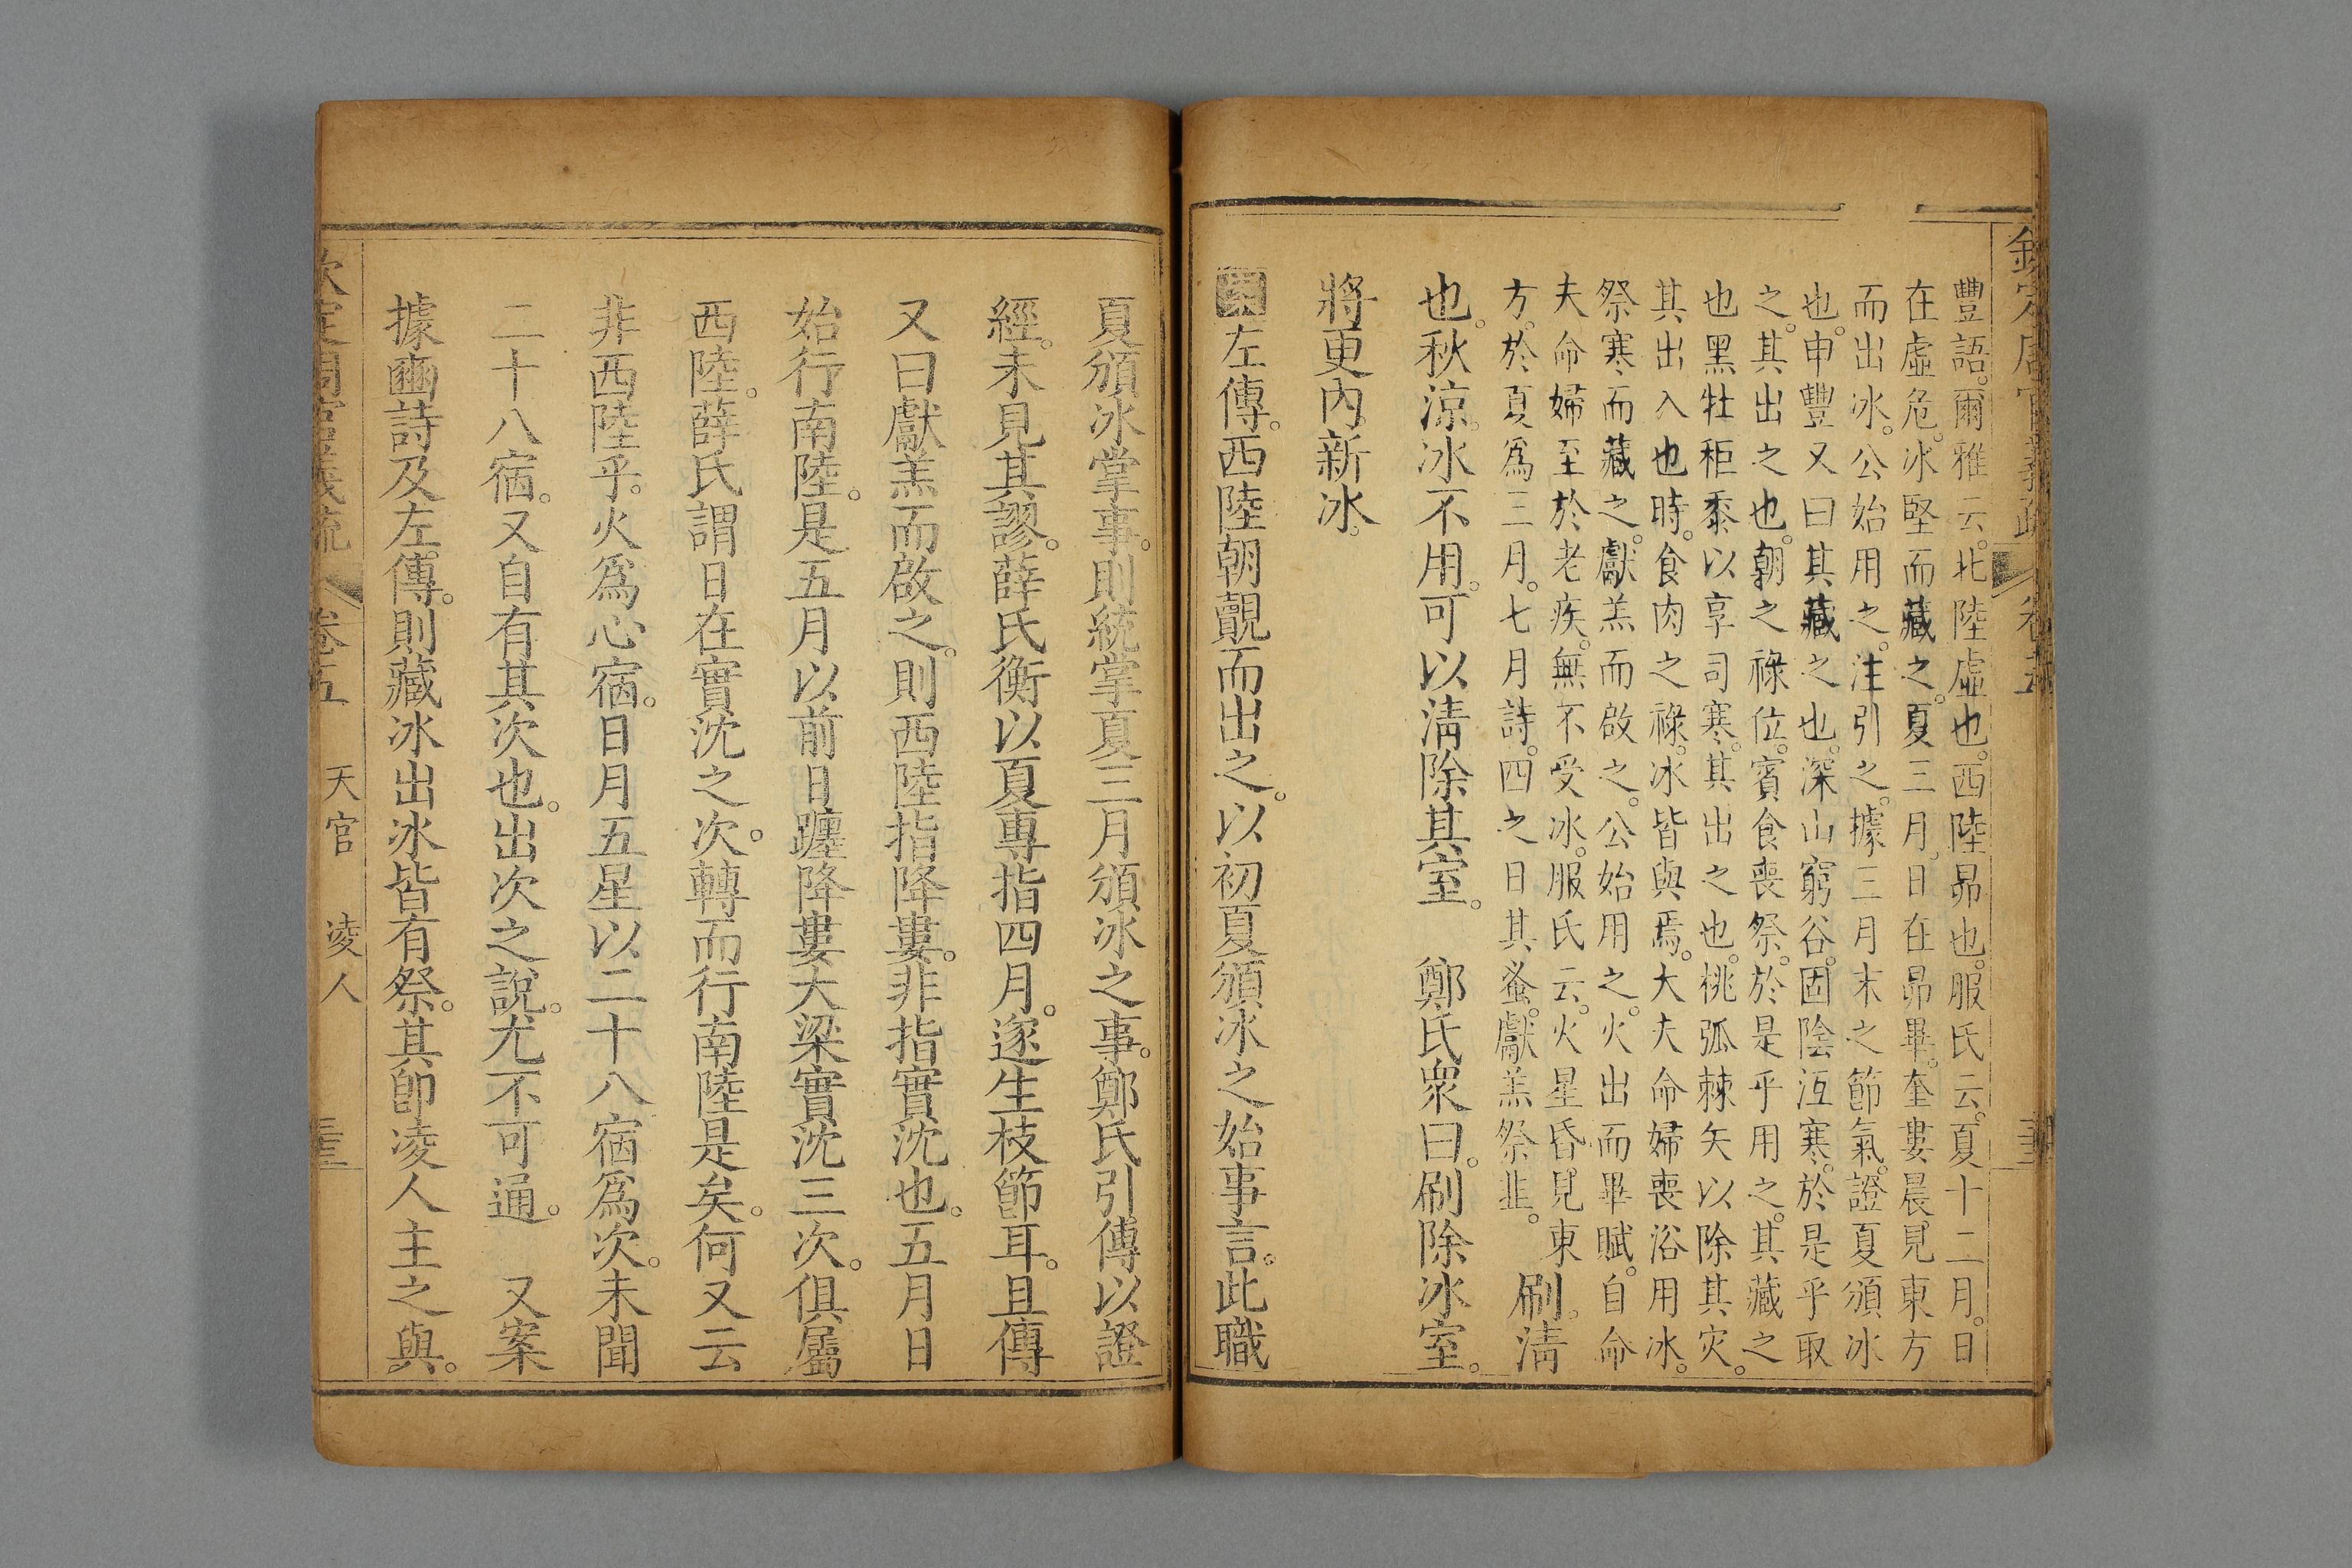 欽定周官義疏 卷五
豐語。爾雅云。北陸虛也。西陸昴也。服氏云。夏十二月。日
在虛危。冰堅而藏之。夏三月。日在昴畢。奎婁晨見東方
而出冰。公始用之。注引之。據三月末之節氣。證夏頒冰
也。申豐又曰其藏之也。深山窮谷。固陰沍寒。於是乎取
之。其出之也。朝之祿位。賓食喪祭。於是乎用之。其藏之
也黑牡秬黍以享司寒。其出之也。桃弧棘矢以除其灾。
其出入也時。食肉之祿。冰皆與焉。大夫命婦喪浴用冰。
祭寒而藏之。獻羔而啟之。公始用之。火出而畢賦。自命
夫命婦至於老疾。無不受冰。服氏云。火星昏見東
方。於夏為三月。七月詩。四之日其蚤。獻羔祭韭。 刷。清
也。秋涼。冰不用。可以清除其室。 鄭氏眾曰。刷除冰室。
將更內新冰。
左傳。西陸朝覿而出之。以初夏頒冰之始事言。此職
夏頒冰掌事。則統掌夏三月頒冰之事。鄭氏引傳以證
經。未見其謬。薛氏衡以夏專指四月。遂生枝節耳。且傳
又曰獻羔而啟之。則西陸指降婁。非指實沈也。五月日
始行南陸。是五月以前日躔降婁大梁實沈三次。俱屬
西陸。薛氏謂日在實沈之次。轉而行南陸是矣。何又云
非西陸乎。火爲心宿。日月五星以二十八宿爲次。未聞
二十八宿。又自有其次也。出次之說。尤不可通。 又案
據豳詩及左傳。則藏冰出冰皆有祭。其卽凌人主之與。
欽定周官義疏 卷五 天官 凌人